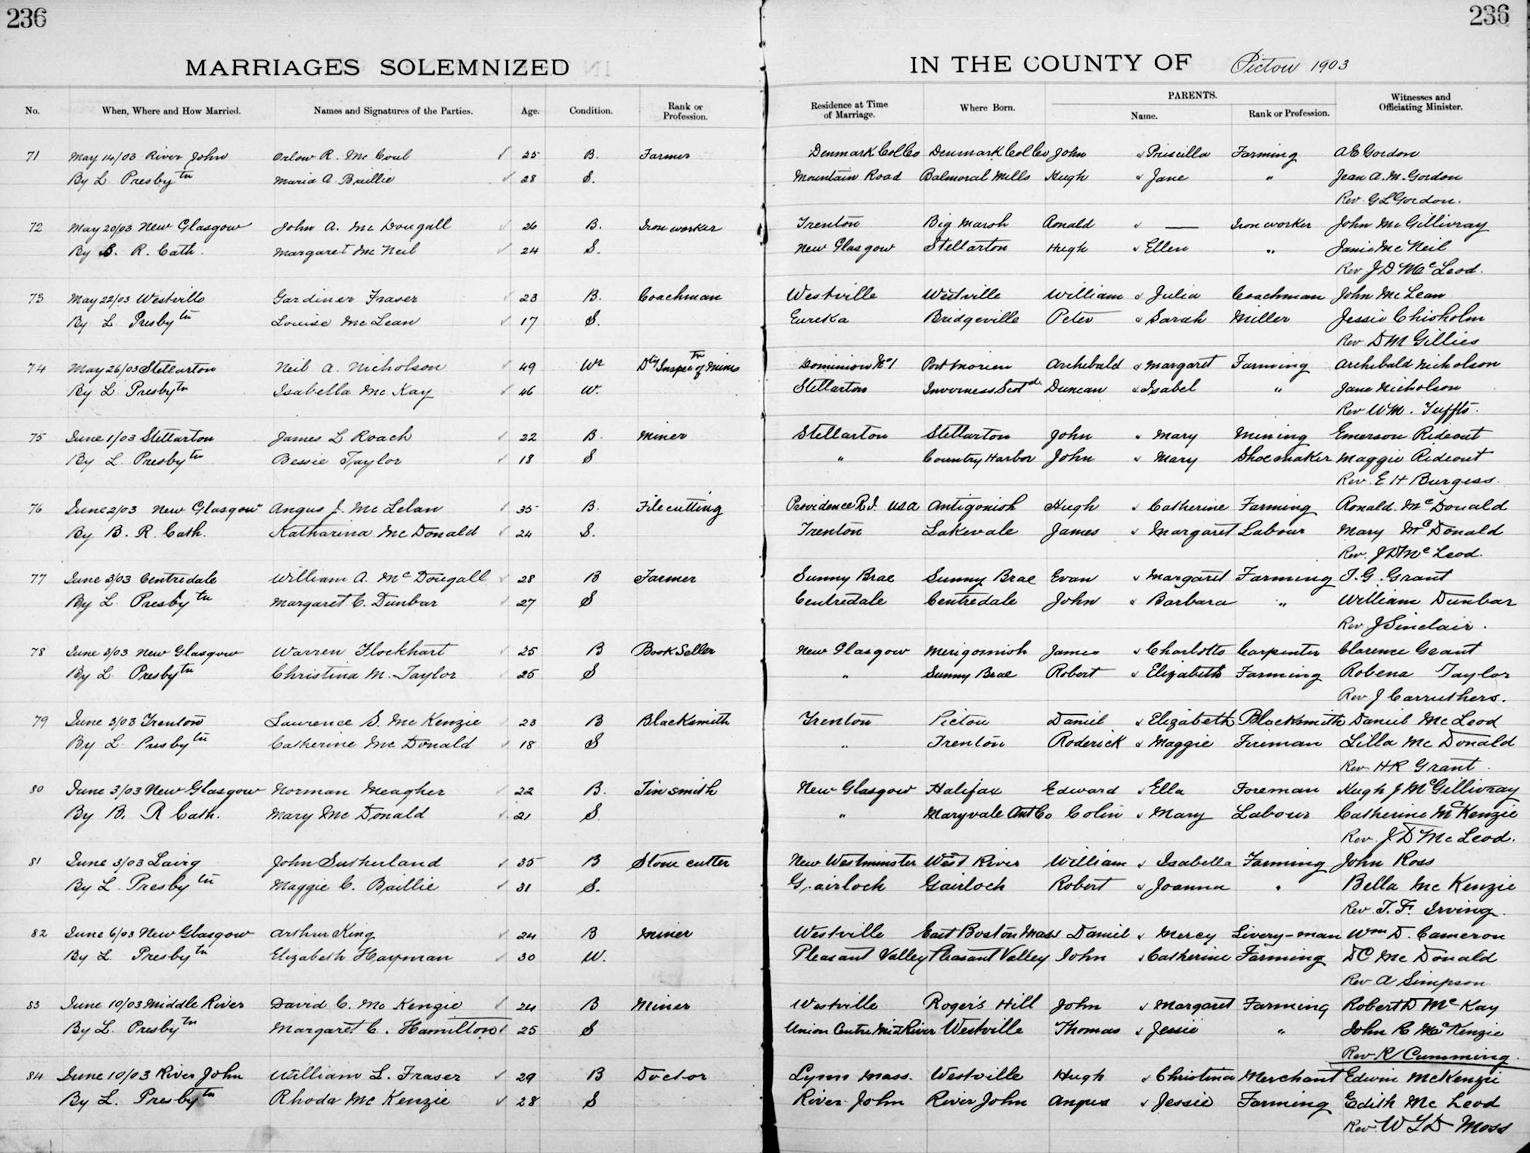 236 236
MARRIAGES SOLEMNIZED IN THE COUNTY OF Pictou 1903
No. When, Where and How Married. Names and Signatures of the Parties. Age. Condition. Rank or Profession. Residence at Time of Marriage. Where Born. PARENTS. Name. Rank or Profession. Witnesses and Officiating Minister.
71 May 14/03 River John Onlow R. Mc Coul 25 B. Farmer Denmark Col Co Denmark Col Co John & Priscilla Farming A E Gordon
By L Presbytn Maria A Baillie 28 S. Mountain Road Balmoral Mills Hugh & Jane " Jean A. M. Gordon
Rev G L Gordon.
72 May 20/03 New Glasgow John A. Mc Dougall 26 B. Iron worker Trenton Big Marsh Ronald & — Iron worker John Mc Gillivray
By B. R. Cath. Margaret Mc Neil 24 S. New Glasgow Stellarton Hugh & Ellen " Janie Mc Neil
Rev J D McLeod.
73 May 22/03 Westville Gardiner Fraser 23 B. Coachman Westville Westville William & Julia Coachman John Mc Lean
By L. Presbytn Louise Mc Lean 17 S. Eureka Bridgeville Peter & Sarah Miller Jessie Chisholm
Rev D M Gillies
74 May 26/03 Stellarton Neil A. Nicholson 49 Wr Dty Inspectn of Mines Dominion No 1 Port Morien Archibald & Margaret Farming Archibald Nicholson
By L. Presbytn Isabella Mc Kay 46 W. Stellarton Inverness Scotd Duncan & Isabel " Jane Nicholson
Rev W M. Tuffts.
75 June 1/03 Stellarton James L Roach 22 B. Miner Stellarton Stellarton John & Mary Mining Emerson Rideout
By L. Presbytn Bessie Taylor 18 S " Country Harbor John & Mary Shoemaker Maggie Rideout
Rev. E H Burgess.
76 June 2/03 New Glasgow Angus J. Mc Lelan 35 B. File cutting Providence R.I. USA Antigonish Hugh & Catherine Farming Ronald McDonald
By B. R. Cath. Katharina Mc Donald 24 S. Trenton Lakevale James & Margaret Labour Mary McDonald
Rev. J D McLeod.
77 June 3/03 Centredale William A. McDougall 28 B Farmer Sunny Brae Sunny Brae Evan & Margaret Farming J. G. Grant
By L. Presbytn Margaret C. Dunbar 27 S Centredale Centredale John & Barbara " William Dunbar
Rev J Sinclair.
78 June 3/03 New Glasgow Warren Flockhart 25 B Book Seller New Glasgow Merigomish James & Charlotte Carpenter Clarence Grant
By L Presbytn Christina M. Taylor 25 S " Sunny Brae Robert & Elizabeth Farming Robena Taylor
Rev J Carruthers.
79 June 3/03 Trenton Laurence S. Mc Kenzie 23 B Blacksmith Trenton Pictou Daniel & Elizabeth Blacksmith Daniel Mc Leod
By L. Presbytn Catherine Mc Donald 18 S " Trenton Roderick & Maggie Fireman Lilla Mc Donald
Rev. H R Grant.
80 June 3/03 New Glasgow Norman Meagher 22 B. Tinsmith New Glasgow Halifax Edward & Ella Foreman Hugh J McGillivray
By B. R Cath. Mary Mc Donald 21 S " Maryvale Ant Co Colin & Mary Labour Catherine McKenzie
Rev. J D McLeod.
81 June 3/03 Lairg John Sutherland 35 B Stone cutter New Westminster West River William & Isabella Farming John Ross
By L. Presbytn Maggie C. Baillie 31 S. Gairloch Gairloch Robert & Joanna " Bella Mc Kenzie
Rev. T. F. Irving.
82 June 6/03 New Glasgow Arthur King 24 B Miner Westville East Boston Mass Daniel & Mercy Livery-man Wm D. Cameron
By L Presbytn Elizabeth Hayman 30 W. Pleasant Valley Pleasant Valley John & Catherine Farming DC Mc Donald
Rev A Simpson
83 June 10/03 Middle River David C. Mc Kenzie 24 B Miner Westville Roger's Hill John & Margaret Farming Robert D McKay
By L. Presbytn Margaret C. Hamilton 25 S Union Centre Mid River Westville Thomas & Jessie " John R McKenzie
Rev R Cumming.
84 June 10/03 River John William L. Fraser 29 B Doctor Lynn Mass. Westville Hugh & Christina Merchant Edwin McKenzie
By L. Presbytn Rhoda Mc Kenzie 28 S River John River John Angus & Jessie Farming Edith Mc Leod
Rev W L D Moss